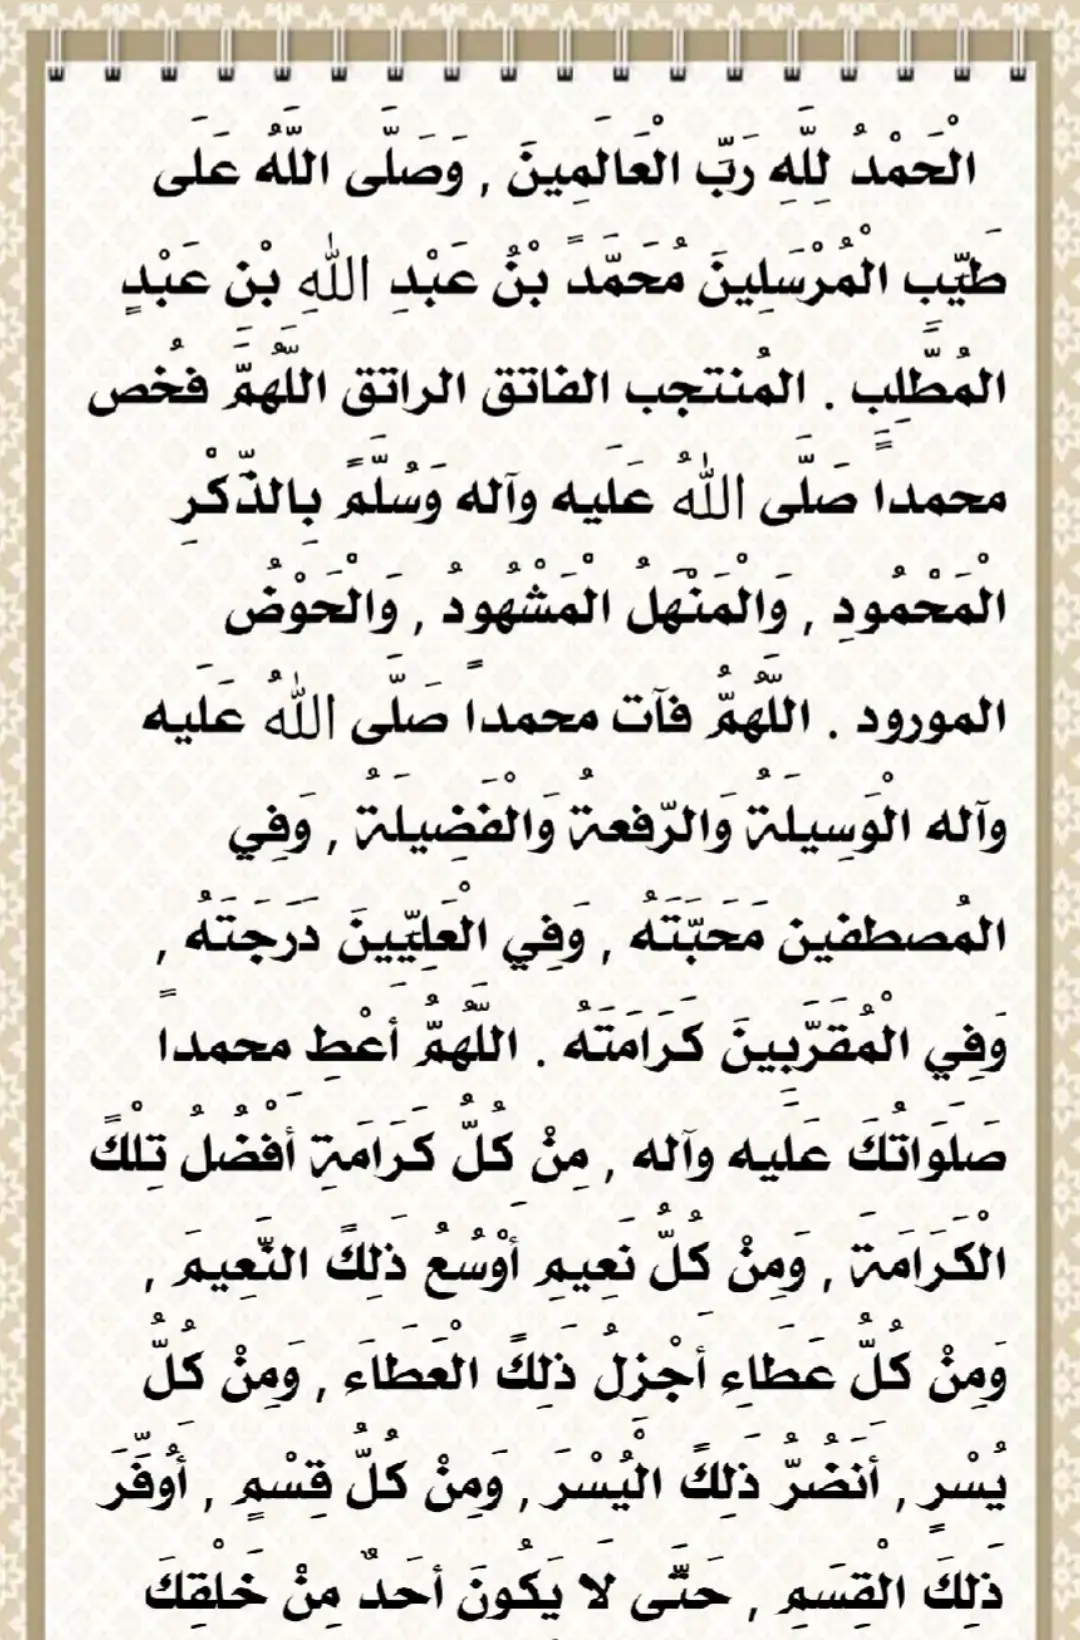 الْحَمْدُ لِلَّهِ رَبِّ الْعَالَمِينَ , وَصَلَّى اللَّهُ عَلَى
طَيِّبِ الْمُرْسَلِينَ مُحَمَّدً بْنُ عَبْدِ اللهِ بْن عَبْدِ
المُطَّلِبِ . المُنتجب الفاتق الراتق اللَّهُمَّ فخُص
محمدا صَلَّى اللهُ عَليه وآله وَسُلَّمً بِالذّكْرِ
الْمَحْمُودِ , وَالْمَنْهَلُ الْمَشْهُودُ , وَالْحوْض
المورود . اللَّهُمُّ فآت محمداً صَلَّى اللهُ عَليه
وآله الْوَسِيلَةُ وَالرّفعةُ وَالْفَضِيلَةُ , وَفِي
المُصطفين مَحَبّتَهُ , وَفِي الْعَلِيِّينَ دَرَجَتَهُ ,
وَفِي الْمُقَرَّبِينَ كَرَامَتَهُ . اللَّهُمُّ أعْطِ محمداً
صَلوَاتُكَ عَليه وآله , مِنْ كُلُّ كَرَامَةِ أفْضُلُ تِلْكً
الْكَرَامَةَ , وَمِنْ كُلُّ نَعِيمِ أوْسُعُ ذَلِكً النَّعِيمَ ,
وَمِنْ كُلُّ عَطاءِ أجْزلُ ذَلِكً الْعَطاَء , وَمِنْ كُلُّ
يُسْرِ , أنَضُرُّ ذَلِكً الْيُسْرَ , وَمِنْ كُلُّ قِسْمٍ , أوُفَّرَ
ذَلِكَ الْقِسَمِ , حَتَّى لَا يَكُونَ أحَدٌ مِنْ خَلْقِكَ